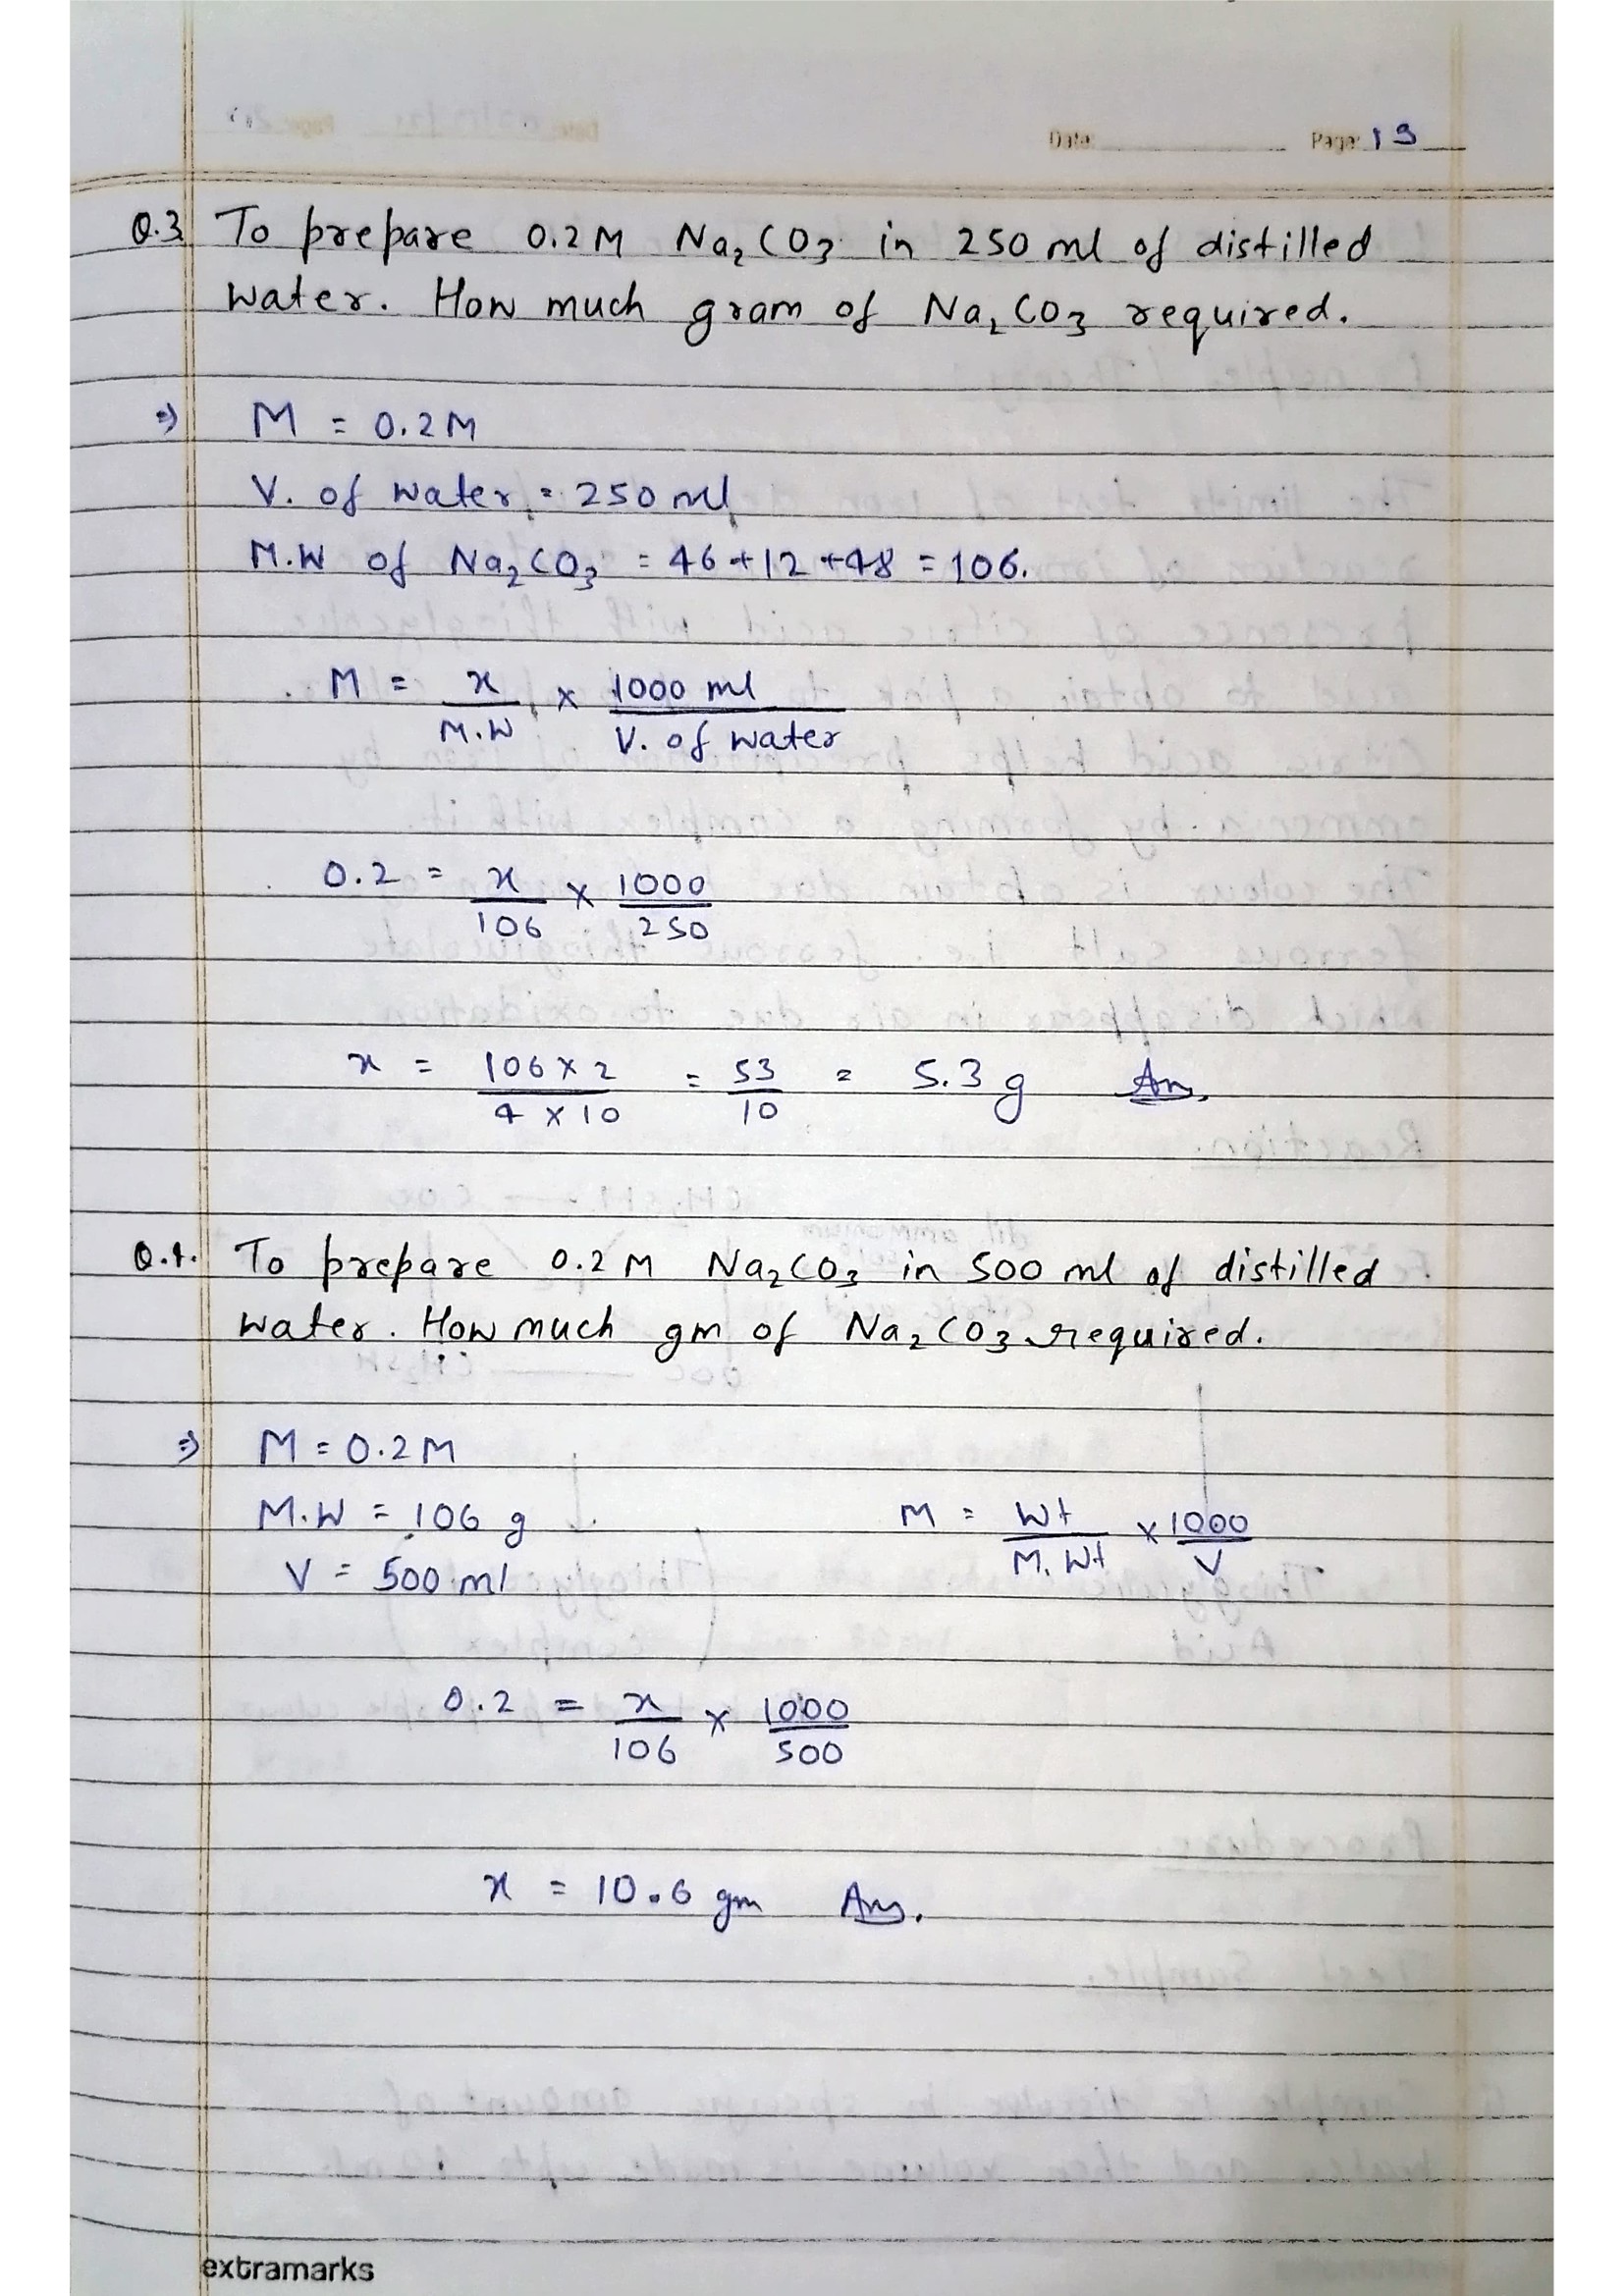 Date: Page: 19
Q.3 To prepare 0.2M Na₂CO₃ in 250 ml of distilled
water. How much gram of Na₂CO₃ required.
⇒ M = 0.2M
V. of water = 250 ml
M.W of Na₂CO₃ = 46+12+48 = 106.
M = x/M.W × 1000 ml/V. of water
0.2 = x/106 × 1000/250
x = 106×2/4×10 = 53/10 = 5.3 g Ans.
Q.4. To prepare 0.2M Na₂CO₃ in 500 ml of distilled
water. How much gm of Na₂CO₃ required.
⇒ M = 0.2M
M.W = 106 g M = Wt/M.Wt × 1000/V
V = 500 ml
0.2 = x/106 × 1000/500
x = 10.6 gm Ans.
extramarks